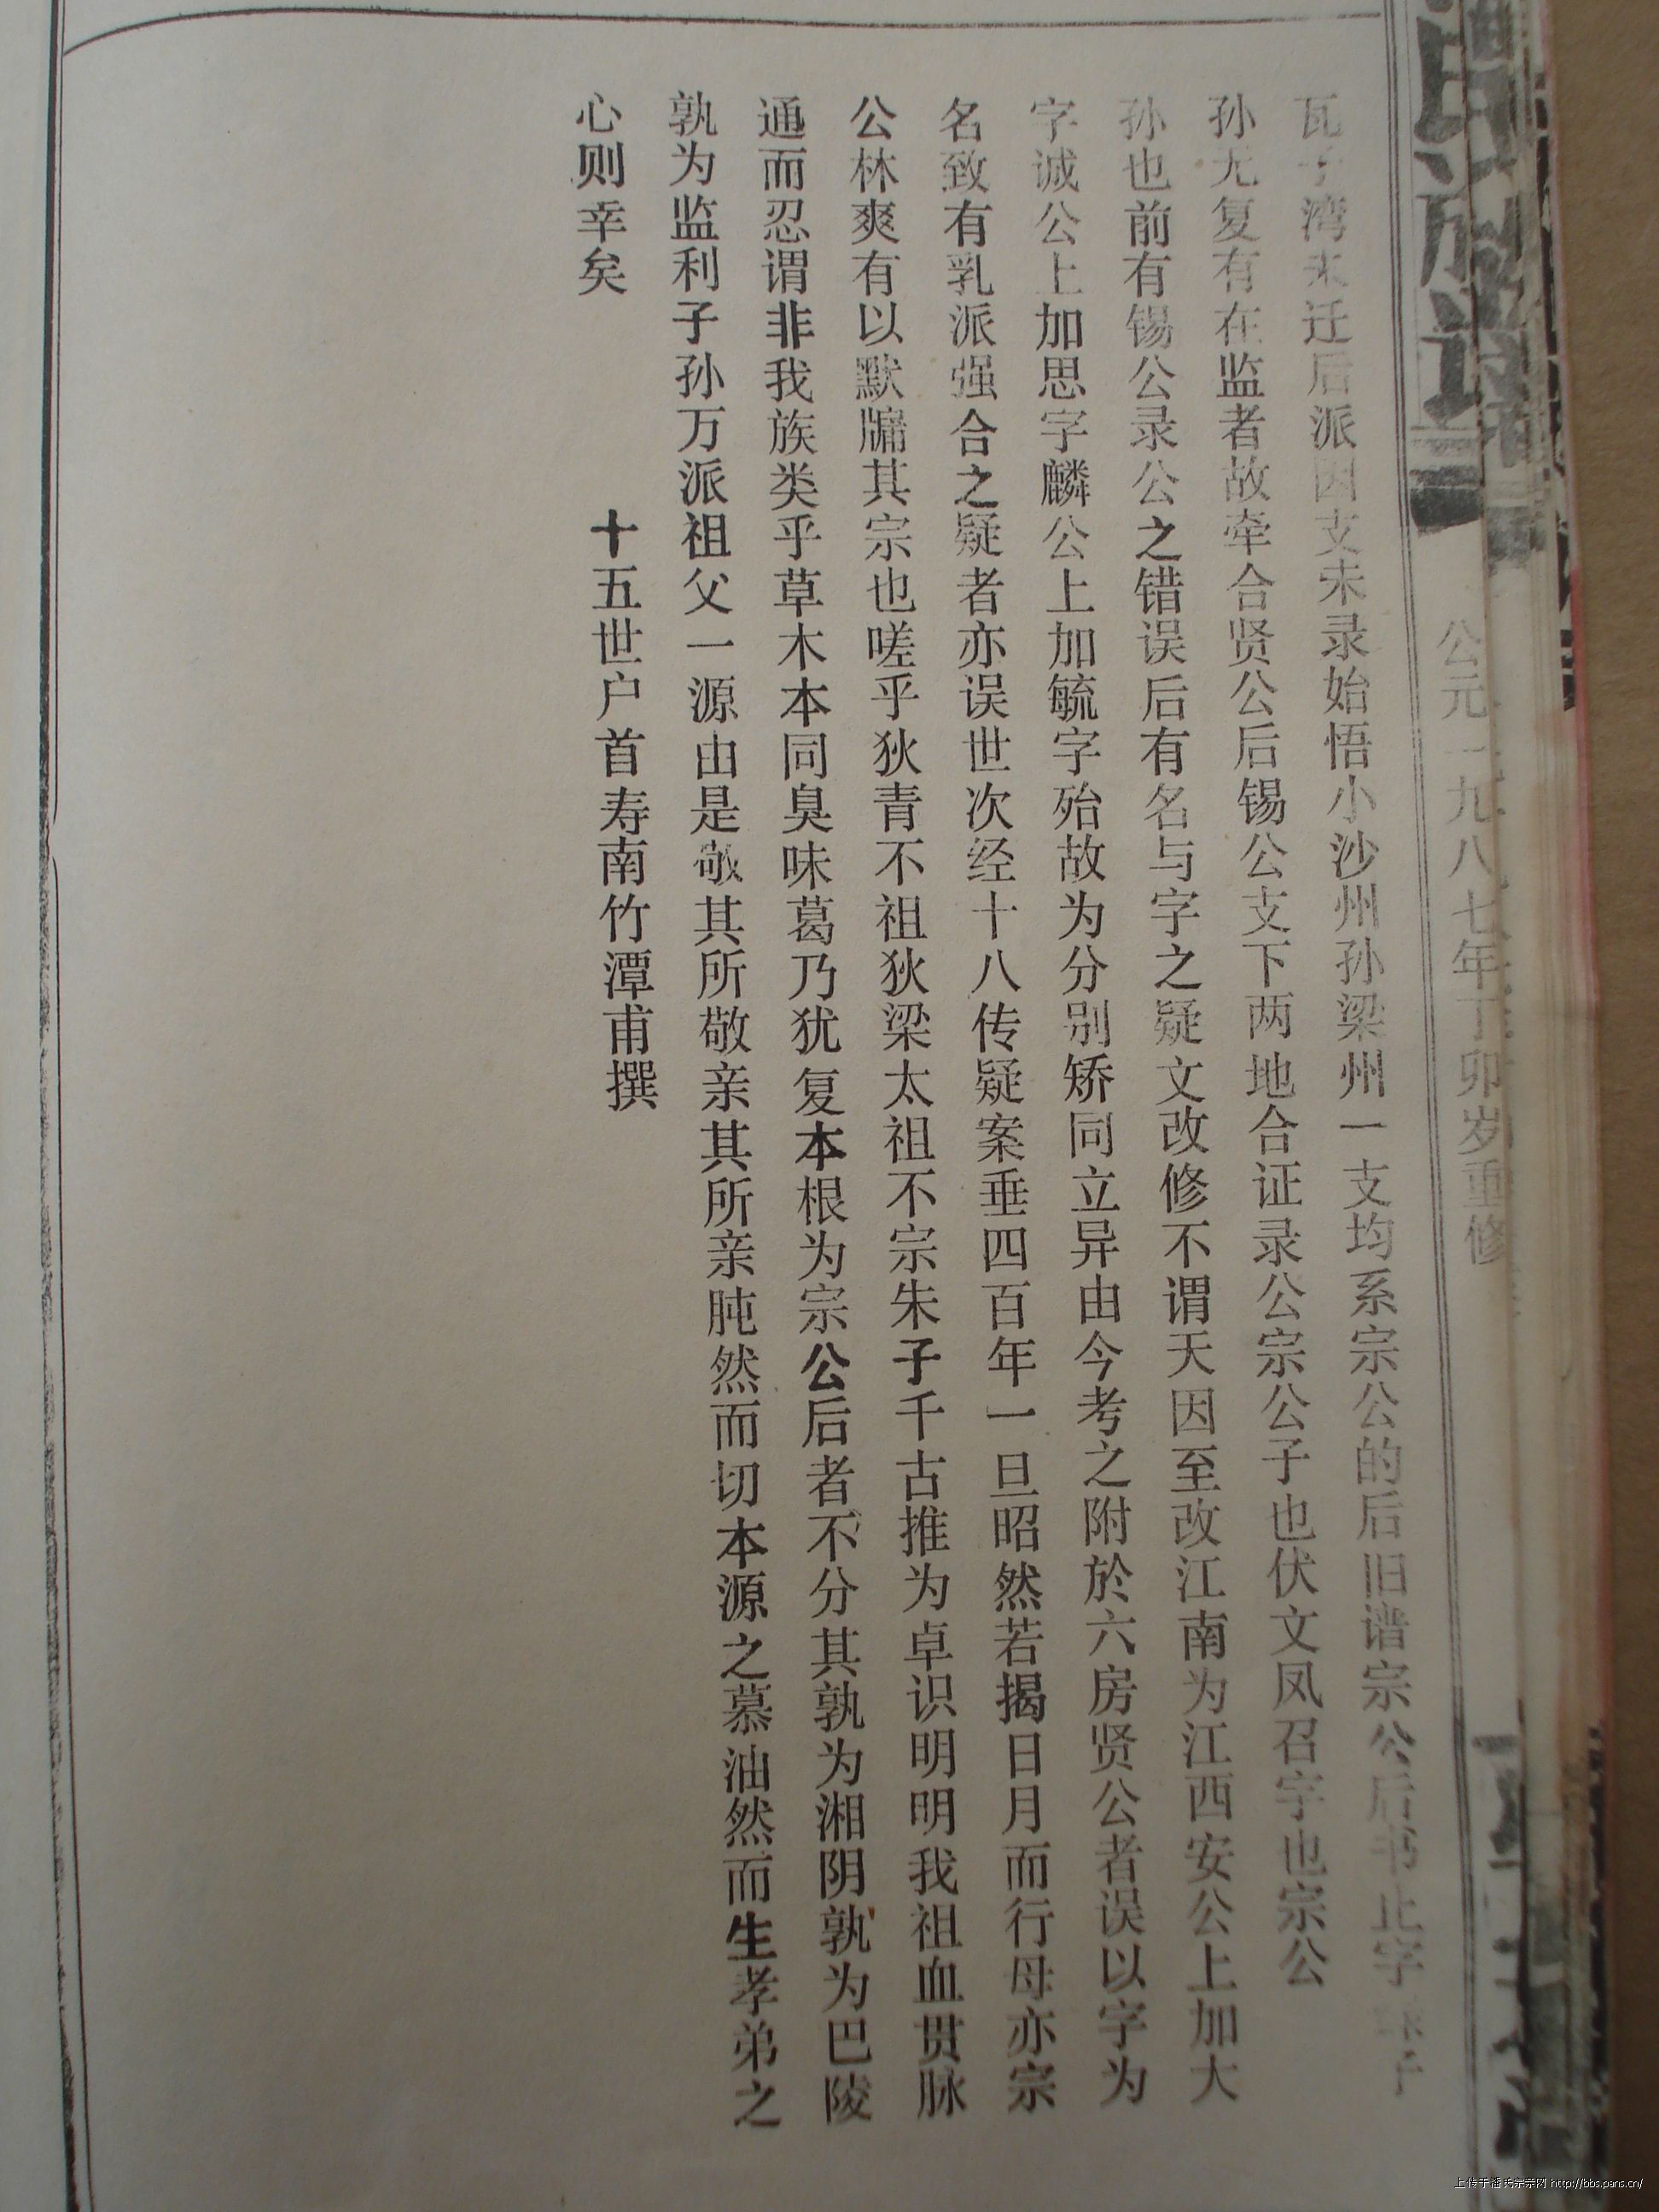 公元一九八七年丁卯岁重修
瓦子湾未迁后派因支未录始悟小沙州孙梁州一支均系宗公的后旧谱宗公后书止字
孙无复有在监者故牵合贤公后锡公支下两地合证录公宗公子也伏文凤召字也宗公
孙也前有锡公录公之错误后有名与字之疑文改修不谓天因至改江南为江西安公上加大
字诚公上加思字麟公上加毓字殆故为分别矫同立异由今考之附於六房贤公者误以字为
名致有乳派强合之疑者亦误世次经十八传疑案垂四百年一旦昭然若揭日月而行母亦宗
公林爽有以默牖其宗也嗟乎狄青不祖狄梁太祖不宗朱子千古推为卓识明明我祖血贯脉
通而忍谓非我族类乎草木本同臭味葛乃犹复本根为宗公后者不分其孰为湘阴孰为巴陵
孰为监利子孙万派祖父一源由是敬其所敬亲其所亲肫然而切本源之慕油然而生孝弟之
心则幸矣
十五世户首寿南竹潭甫撰
上传于潘氏宗亲网 http://bbs.pans.cn/